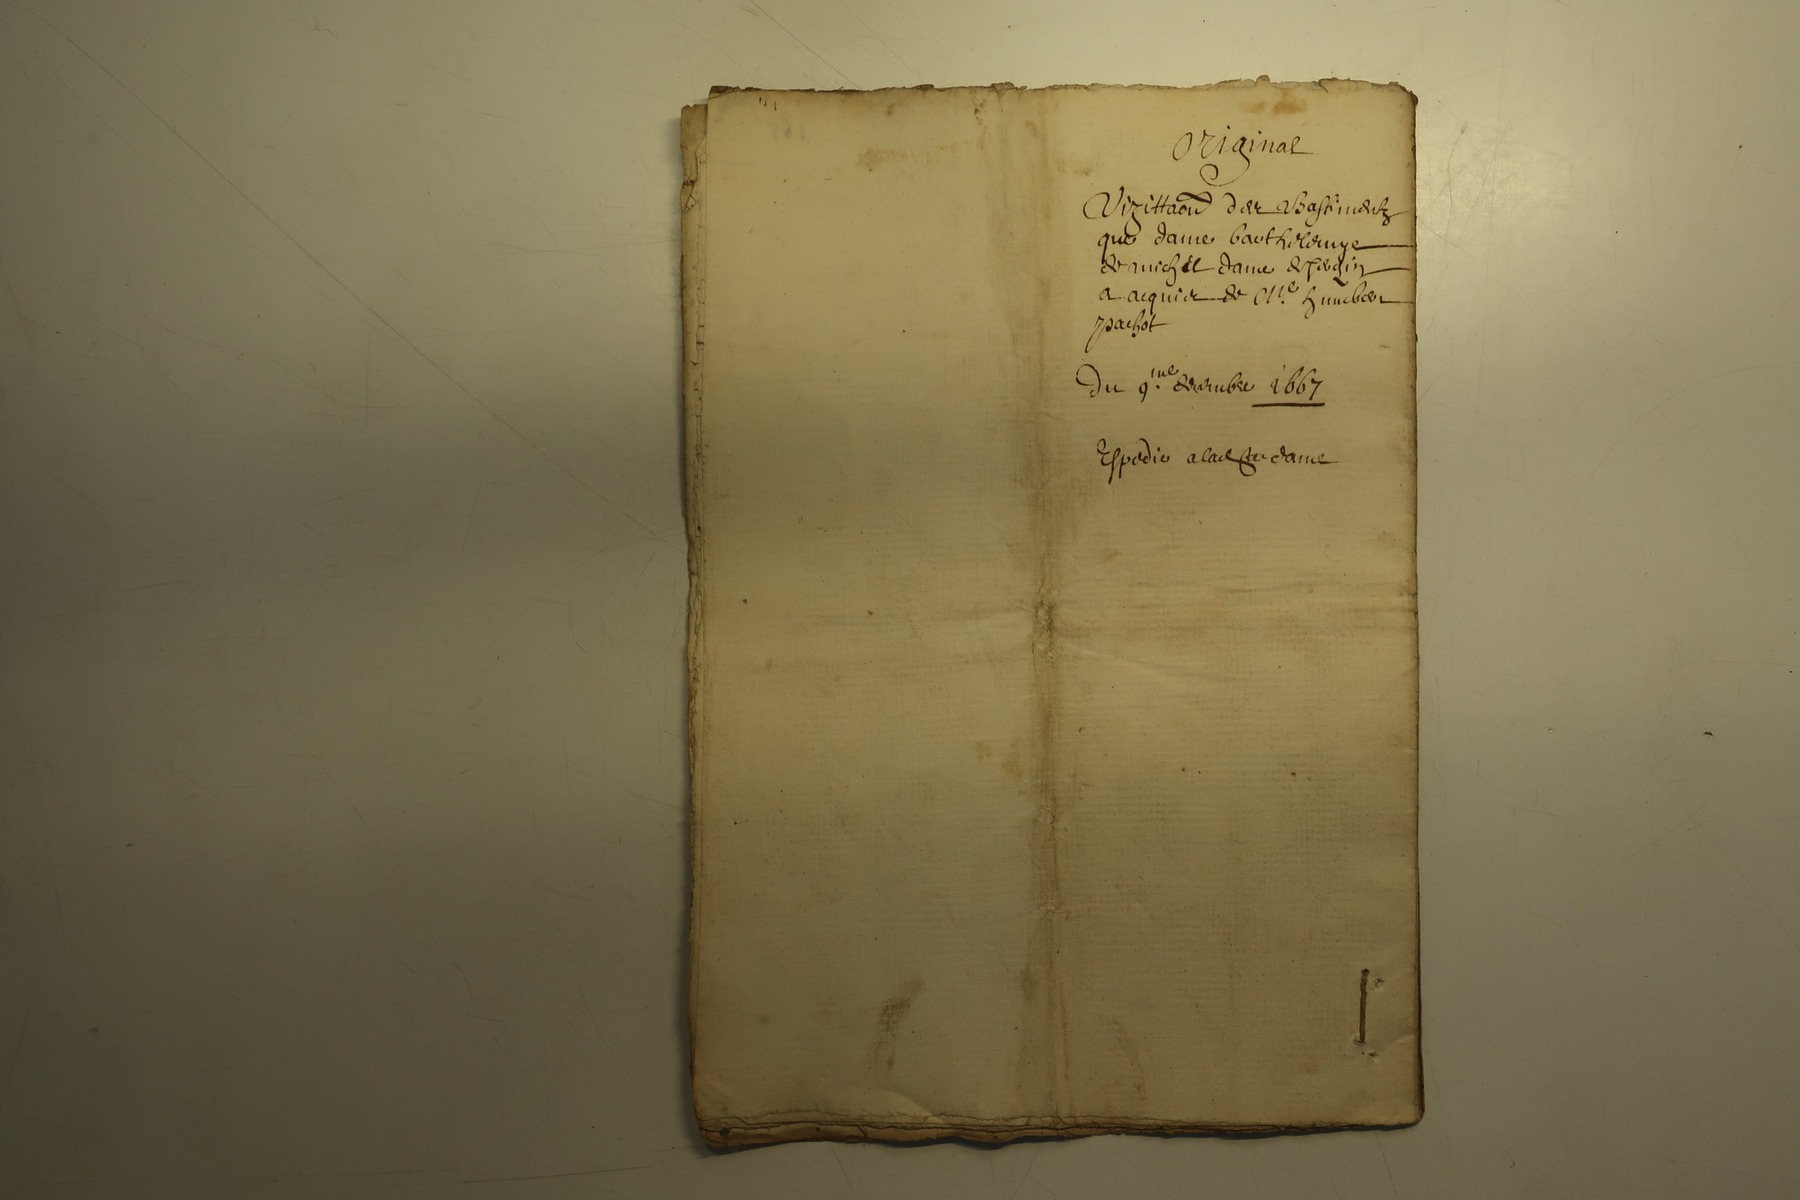 Original
Vizittaon des Bastimentz
que dame bartholemye
de michal dame
a acquis de Mre humber
pachot
Du 9me decembre 1667
Expedie a lad dame